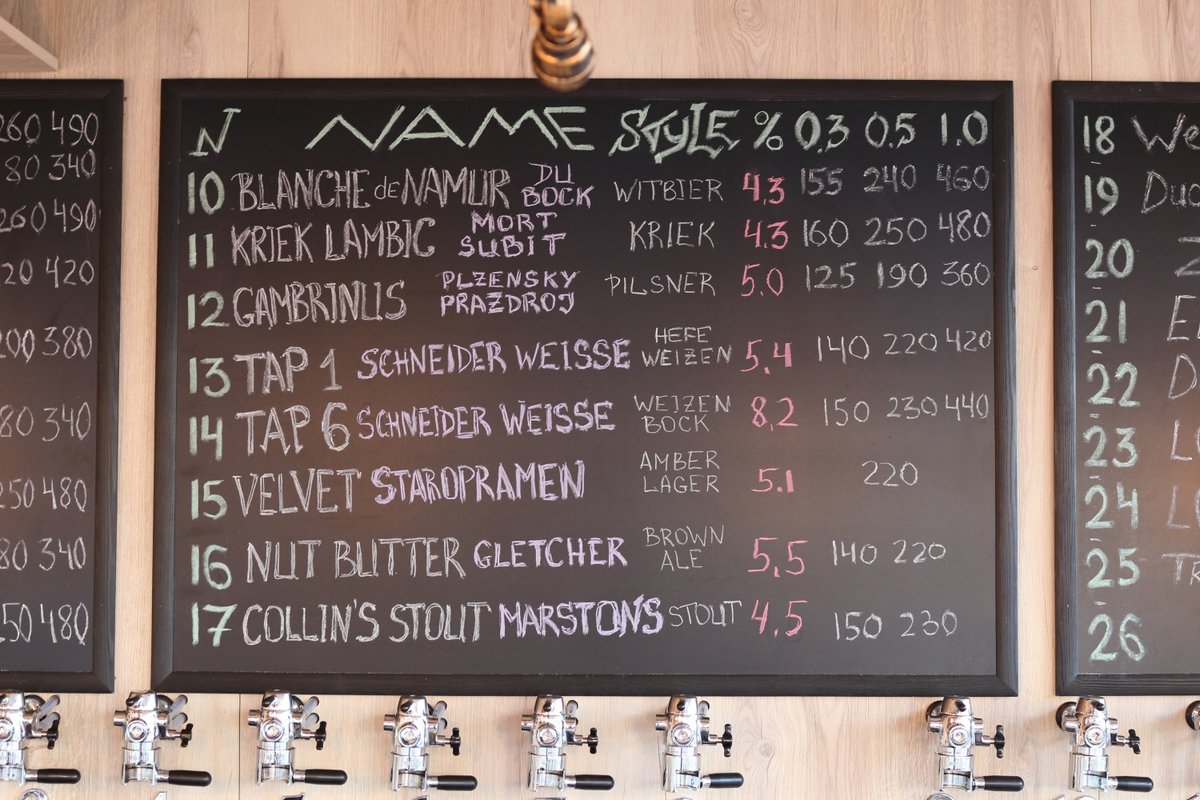 260 490
80 340
260 490
20 420
200 380
80 340
250 480
80 340
50 480
N NAME STYLE % 0.3 0.5 1.0
10 BLANCHE de NAMUR DU BOCK WITBIER 4.3 155 240 460
11 KRIEK LAMBIC MORT SUBIT KRIEK 4.3 160 250 480
12 GAMBRINUS PLZENSKY PRAZDROJ PILSNER 5.0 125 190 360
13 TAP 1 SCHNEIDER WEISSE HEFE WEIZEN 5.4 140 220 420
14 TAP 6 SCHNEIDER WEISSE WEIZEN BOCK 8.2 150 230 440
15 VELVET STAROPRAMEN AMBER LAGER 5.1 220
16 NUT BUTTER GLETCHER BROWN ALE 5,5 140 220
17 COLLIN'S STOUT MARSTON'S STOUT 4.5 150 230
18 We
19 Duc
20
21
22
23
24
25
26